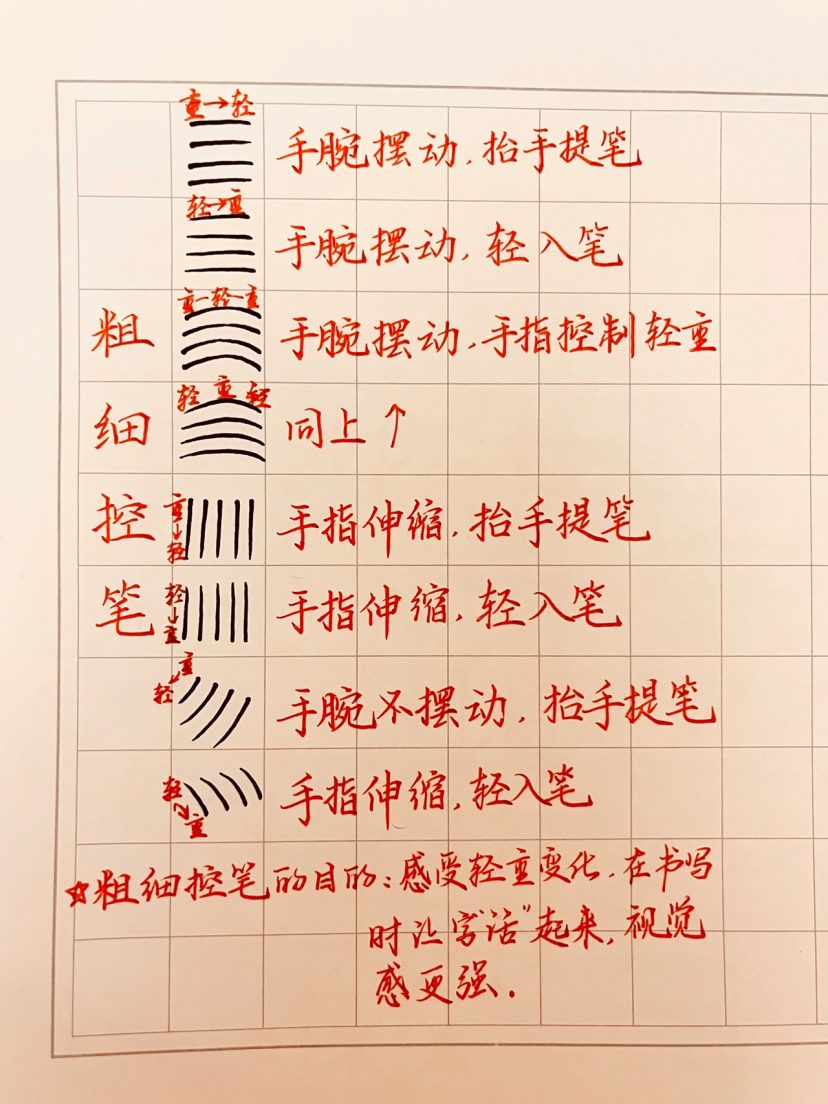 重→轻
手腕摆动,抬手提笔
轻→重
手腕摆动,轻入笔
重—轻—重
粗 手腕摆动,手指控制轻重
轻 重 轻
细 同上↑
控 重→轻 手指伸缩,抬手提笔
笔 轻→重 手指伸缩,轻入笔
重
轻 手腕不摆动,抬手提笔
轻
重 手指伸缩,轻入笔
☆粗细控笔的目的:感受轻重变化,在书写
时让字“活”起来,视觉
感更强.